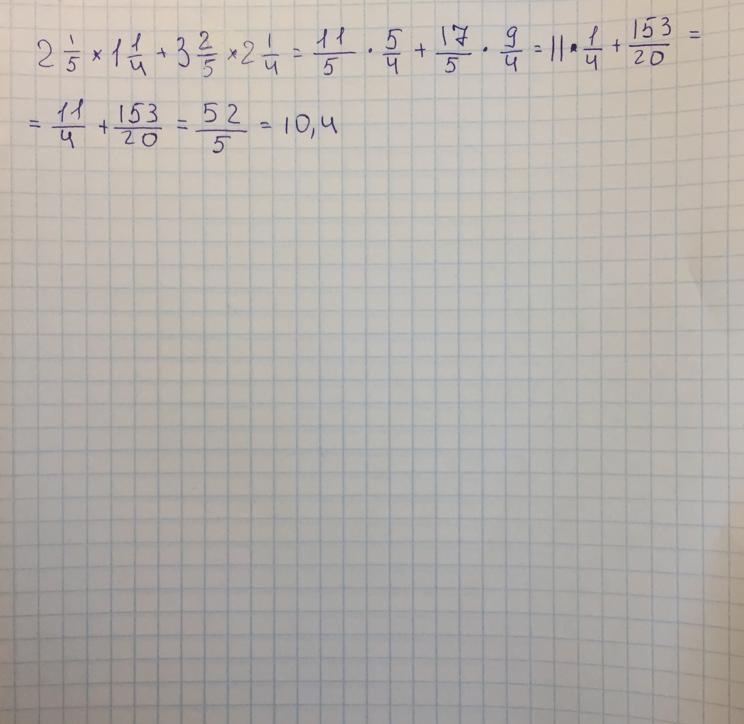 2 1/5 × 1 1/4 + 3 2/5 × 2 1/4 = 11/5 · 5/4 + 17/5 · 9/4 = 11 · 1/4 + 153/20 =
= 11/4 + 153/20 = 52/5 = 10,4